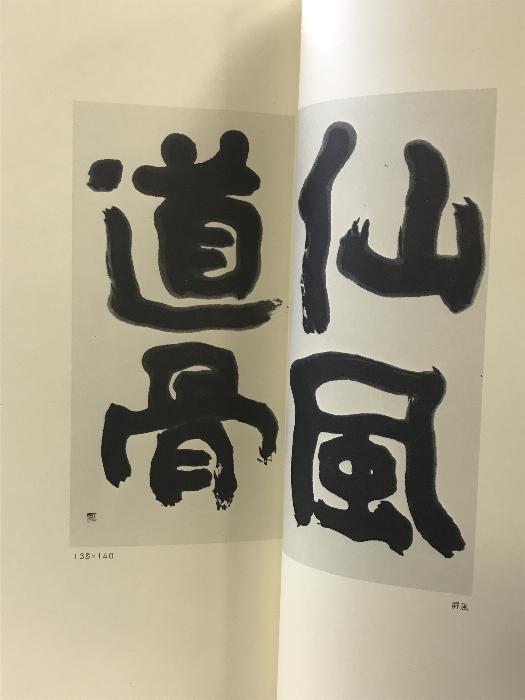 仙風
道骨
138×140
屏風